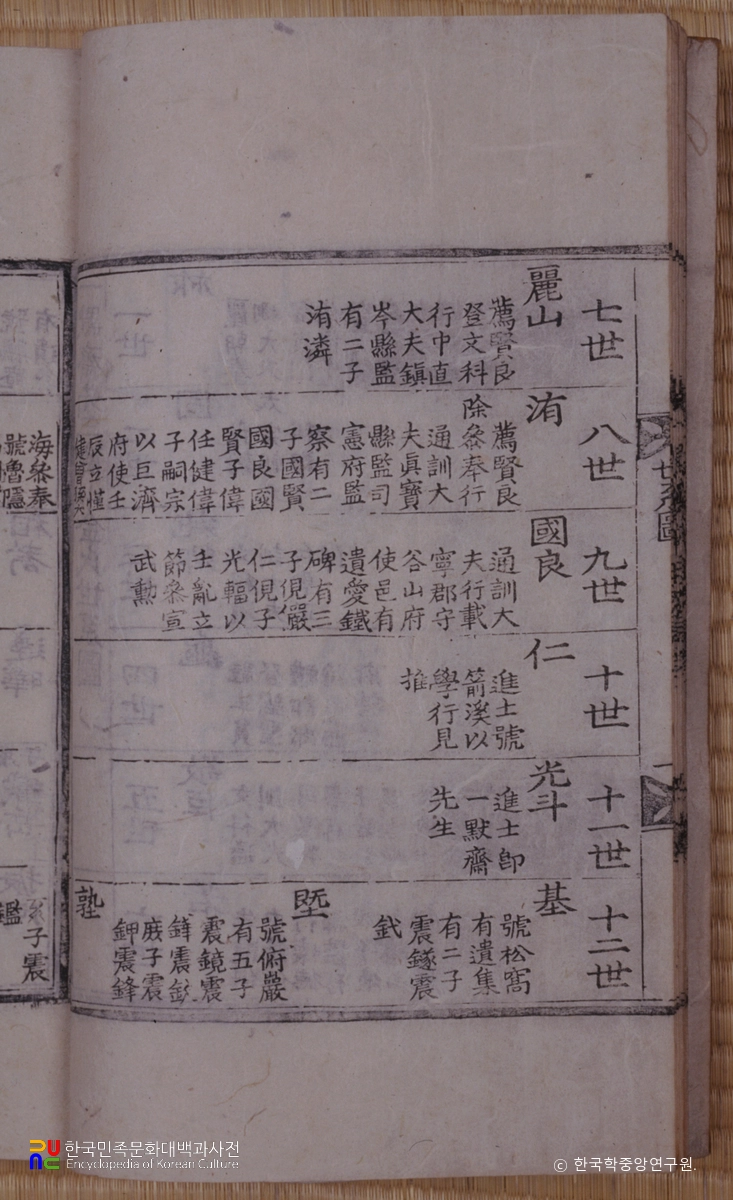 世系圖
七世
麗山
薦賢良
登文科
行中直
大夫鎭
岑縣監
有二子
洧潾
八世
洧
薦賢良
除叅奉行
通訓大
夫眞寶
縣監司
憲府監
察有二
子國賢
國良國
賢子偉
任健偉
子嗣宗
以巨濟
府使壬
辰立慬
九世
國良
通訓大
夫行載
寧郡守
谷山府
使邑有
遺愛鐵
碑有三
子俔儼
仁俔子
光輻以
士亂立
節叅宣
武勲
十世
仁
進士號
箭溪以
學行見
推
十一世
光斗
進士卽
一默齋
先生
十二世
基
號松窩
有遺集
有二子
震鐩震
鉽
塈
號俯巖
有五子
震鏡震
鋅震
庻子震
鉀震鋒
塾
海叅奉
子震
鑑
한국민족문화대백과사전
Encyclopedia of Korean Culture
© 한국학중앙연구원.